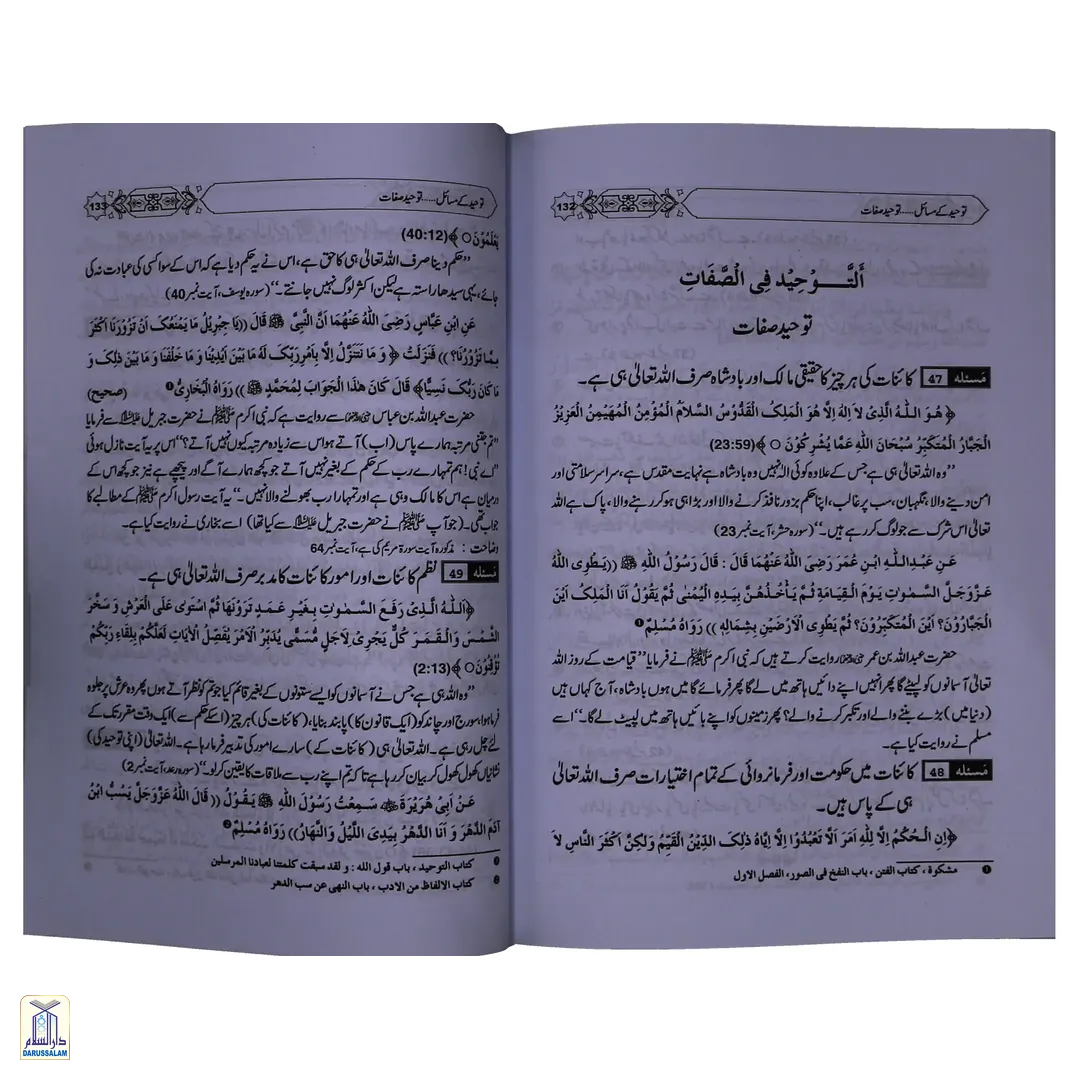 132
توحید کے مسائل.....توحید صفات
اَلتَّـــوْحِیْد فِی الْصِّفَاتِ
توحید صفات
مَسئله 47 کائنات کی ہر چیز کا حقیقی مالک اور بادشاہ صرف اللہ تعالیٰ ہی ہے۔
﴿ هُوَ اللّٰهُ الَّذِیْ لَا اِلٰهَ اِلَّا هُوَ الْمَلِکُ الْقُدُّوْسُ السَّلاَمُ الْمُؤْمِنُ الْمُهَیْمِنُ الْعَزِیْزُ
الْجَبَّارُ الْمُتَکَبِّرُ سُبْحَانَ اللّٰهِ عَمَّا یُشْرِکُوْنَ ○ ﴾(23:59)
’’وہ اللہ تعالیٰ ہی ہے جس کے علاوہ کوئی الٰہ نہیں وہ بادشاہ ہے نہایت مقدس ہے، سراسر سلامتی اور
امن دینے والا، نگہبان، سب پر غالب، اپنا حکم بزور نافذ کرنے والا اور بڑا ہی ہو کر رہنے والا، پاک ہے اللہ
تعالیٰ اس شرک سے جو لوگ کر رہے ہیں۔‘‘(سورہ حشر، آیت نمبر 23)
عَنْ عَبْدِاللّٰهِ ابْنِ عُمَرَ رَضِیَ اللّٰهُ عَنْهُمَا قَالَ : قَالَ رَسُوْلُ اللّٰهِ ﷺ ((یَطْوِی اللّٰهُ
عَزَّوَجَلَّ السَّمٰوٰتِ یَوْمَ الْقِیَامَةِ ثُمَّ یَأْخُذُهُنَّ بِیَدِهِ الْیُمْنٰی ثُمَّ یَقُوْلُ اَنَا الْمَلِکُ اَیْنَ
الْجَبَّارُوْنَ؟ اَیْنَ الْمُتَکَبِّرُوْنَ؟ ثُمَّ یَطْوِی الْاَرْضِیْنَ بِشِمَالِهِ )) رَوَاهُ مُسْلِمٌ❶
حضرت عبداللہ بن عمر رضی اللہ عنہما روایت کرتے ہیں کہ نبی اکرم ﷺ نے فرمایا ’’قیامت کے روز اللہ
تعالیٰ آسمانوں کو لپیٹے گا پھر انہیں اپنے دائیں ہاتھ میں لے گا پھر فرمائے گا میں ہوں بادشاہ، آج کہاں ہیں
(دنیا میں) بڑے بننے والے اور تکبر کرنے والے؟ پھر زمینوں کو اپنے بائیں ہاتھ میں لپیٹ لے گا۔‘‘ اسے
مسلم نے روایت کیا ہے۔
مَسئله 48 کائنات میں حکومت اور فرمانروائی کے تمام اختیارات صرف اللہ تعالیٰ
ہی کے پاس ہیں۔
﴿اِنِ الْحُکْمُ اِلَّا لِلّٰهِ اَمَرَ اَلَّا تَعْبُدُوْا اِلَّا اِیَّاهُ ذٰلِکَ الدِّیْنُ الْقَیِّمُ وَلٰکِنَّ اَکْثَرَ النَّاسِ لاَ
❶ مشکوة ، کتاب الفتن ، باب النفخ فی الصور، الفصل الاول
133
توحید کے مسائل.....توحید صفات
یَعْلَمُوْنَ ○ ﴾(40:12)
’’حکم دینا صرف اللہ تعالیٰ ہی کا حق ہے، اس نے یہ حکم دیا ہے کہ اس کے سوا کسی کی عبادت نہ کی
جائے، یہی سیدھا راستہ ہے لیکن اکثر لوگ نہیں جانتے۔‘‘(سورہ یوسف، آیت نمبر 40)
عَنِ ابْنِ عَبَّاسٍ رَضِیَ اللّٰهُ عَنْهُمَا اَنَّ النَّبِیَّ ﷺ قَالَ ((یَا جِبْرِیْلُ مَا یَمْنَعُکَ اَنْ تَزُوْرَنَا اَکْثَرَ
مِمَّا تَزُوْرُنَا؟ )) فَنَزَلَتْ ﴿ وَ مَا نَتَنَزَّلُ اِلَّا بِاَمْرِ رَبِّکَ لَهُ مَا بَیْنَ اَیْدِیْنَا وَ مَا خَلْفَنَا وَ مَا بَیْنَ ذٰلِکَ وَ
مَا کَانَ رَبُّکَ نَسِیًّا﴾ قَالَ کَانَ هٰذَا الْجَوَابَ لِمُحَمَّدٍ ﷺ )) رَوَاهُ الْبُخَارِیُّ❶ (صحیح)
حضرت عبداللہ بن عباس رضی اللہ عنہما سے روایت ہے کہ نبی اکرم ﷺ نے حضرت جبریل علیہ السلام سے فرمایا
’’تم جتنی مرتبہ ہمارے پاس (اب) آتے ہو اس سے زیادہ مرتبہ کیوں نہیں آتے؟‘‘ اس پر یہ آیت نازل ہوئی
’’اے نبی! ہم تمہارے رب کے حکم کے بغیر نہیں آتے جو کچھ ہمارے آگے اور پیچھے ہے نیز جو کچھ اس کے
درمیان ہے اس کا مالک وہی ہے اور تمہارا رب بھولنے والا نہیں۔‘‘ یہ آیت رسول اکرم ﷺ کے مطالبے کا
جواب تھی۔ (جو آپ ﷺ نے حضرت جبریل علیہ السلام سے کیا تھا) اسے بخاری نے روایت کیا ہے۔
وضاحت : مذکورہ آیت سورۃ مریم کی ہے، آیت نمبر 64
مَسئله 49 نظم کائنات اور امور کائنات کا مدبر صرف اللہ تعالیٰ ہی ہے۔
﴿اَللّٰهُ الَّذِیْ رَفَعَ السَّمٰوٰتِ بِغَیْرِ عَمَدٍ تَرَوْنَهَا ثُمَّ اسْتَوٰی عَلَی الْعَرْشِ وَ سَخَّرَ
الشَّمْسَ وَالْقَمَرَ کُلٌّ یَجْرِیْ لِاَجَلٍ مُّسَمًّی یُدَبِّرُ الْاَمْرَ یُفَصِّلُ الْآیَاتِ لَعَلَّکُمْ بِلِقَاءِ رَبِّکُمْ
تُوْقِنُوْنَ ○ ﴾(2:13)
’’وہ اللہ ہی ہے جس نے آسمانوں کو ایسے ستونوں کے بغیر قائم کیا جو تم کو نظر آتے ہوں پھر وہ عرش پر جلوہ
فرما ہوا، سورج اور چاند کو (ایک قانون کا) پابند بنایا، (کائنات کی) ہر چیز (اسکے حکم سے) ایک وقت مقرر تک کے
لئے چل رہی ہے۔ اللہ تعالیٰ ہی (کائنات کے) سارے امور کی تدبیر فرما رہا ہے۔ اللہ تعالیٰ (اپنی توحید کی)
نشانیاں کھول کھول کر بیان کر رہا ہے تاکہ تم اپنے رب سے ملاقات کا یقین کر لو۔‘‘(سورہ رعد، آیت نمبر 2)
عَنْ اَبِیْ هُرَیْرَةَ ﷜ سَمِعْتُ رَسُوْلَ اللّٰهِ ﷺ یَقُوْلُ (( قَالَ اللّٰهُ عَزَّوَجَلَّ یَسُبُّ ابْنُ
آدَمَ الدَّهْرَ وَ اَنَا الدَّهْرُ بِیَدِیَ اللَّیْلُ وَالنَّهَارُ)) رَوَاهُ مُسْلِمٌ❷
❶ کتاب التوحید ، باب قول الله : و لقد سبقت کلمتنا لعبادنا المرسلین
❷ کتاب الالفاظ من الادب ، باب النهی عن سب الدهر
دارالسلام
DARUSSALAM